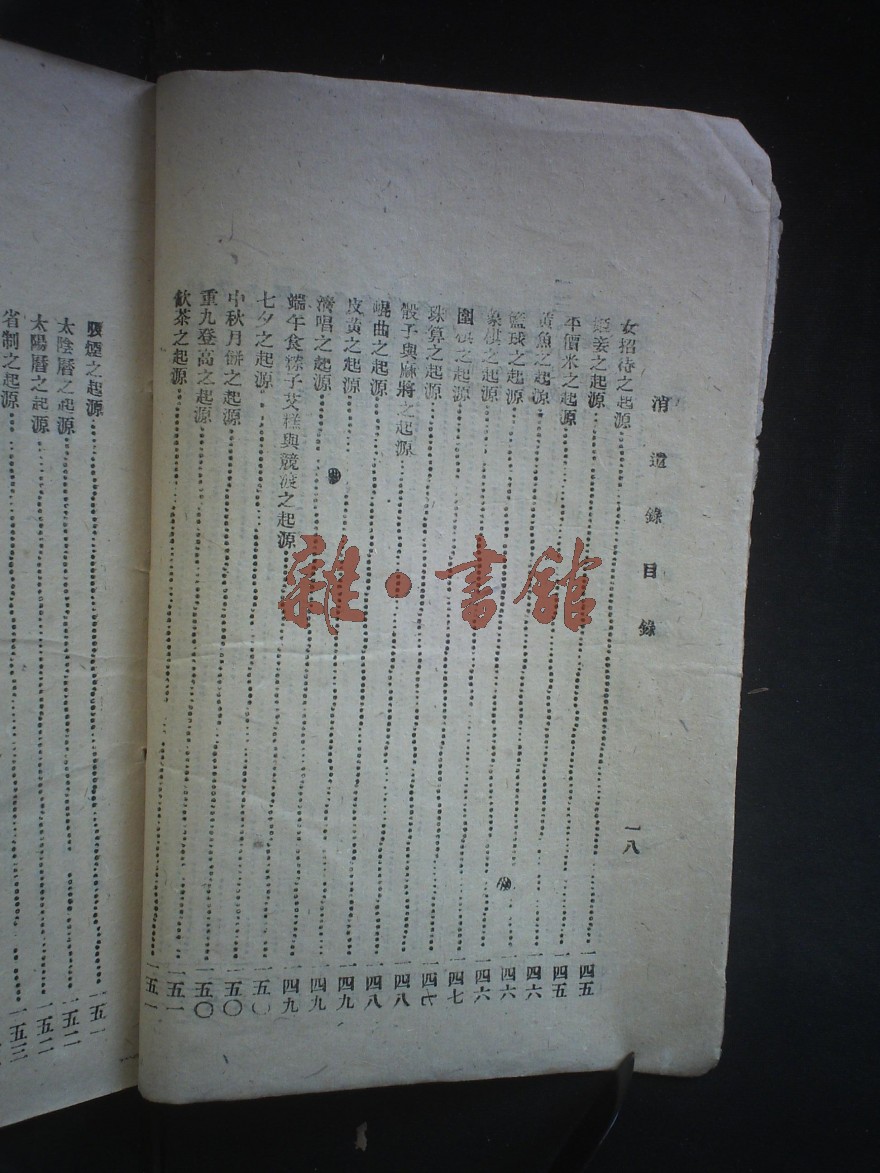 消遣錄目錄 一八
女招待之起源 一四五
姬妾之起源 一四五
平價米之起源 一四六
黃魚之起源 一四六
籃球之起源 一四六
象棋之起源 一四七
圍棋之起源 一四七
珠算之起源 一四八
骰子與麻將之起源 一四八
崐曲之起源 一四九
皮黃之起源 一四九
灘唱之起源 一四九
端午食粽子艾糕與競渡之起源 一五〇
七夕之起源 一五〇
中秋月餅之起源 一五〇
重九登高之起源 一五一
飲茶之起源 一五一
煙之起源 一五一
太陰曆之起源 一五二
太陽曆之起源 一五二
省制之起源 一五三
雜·書館